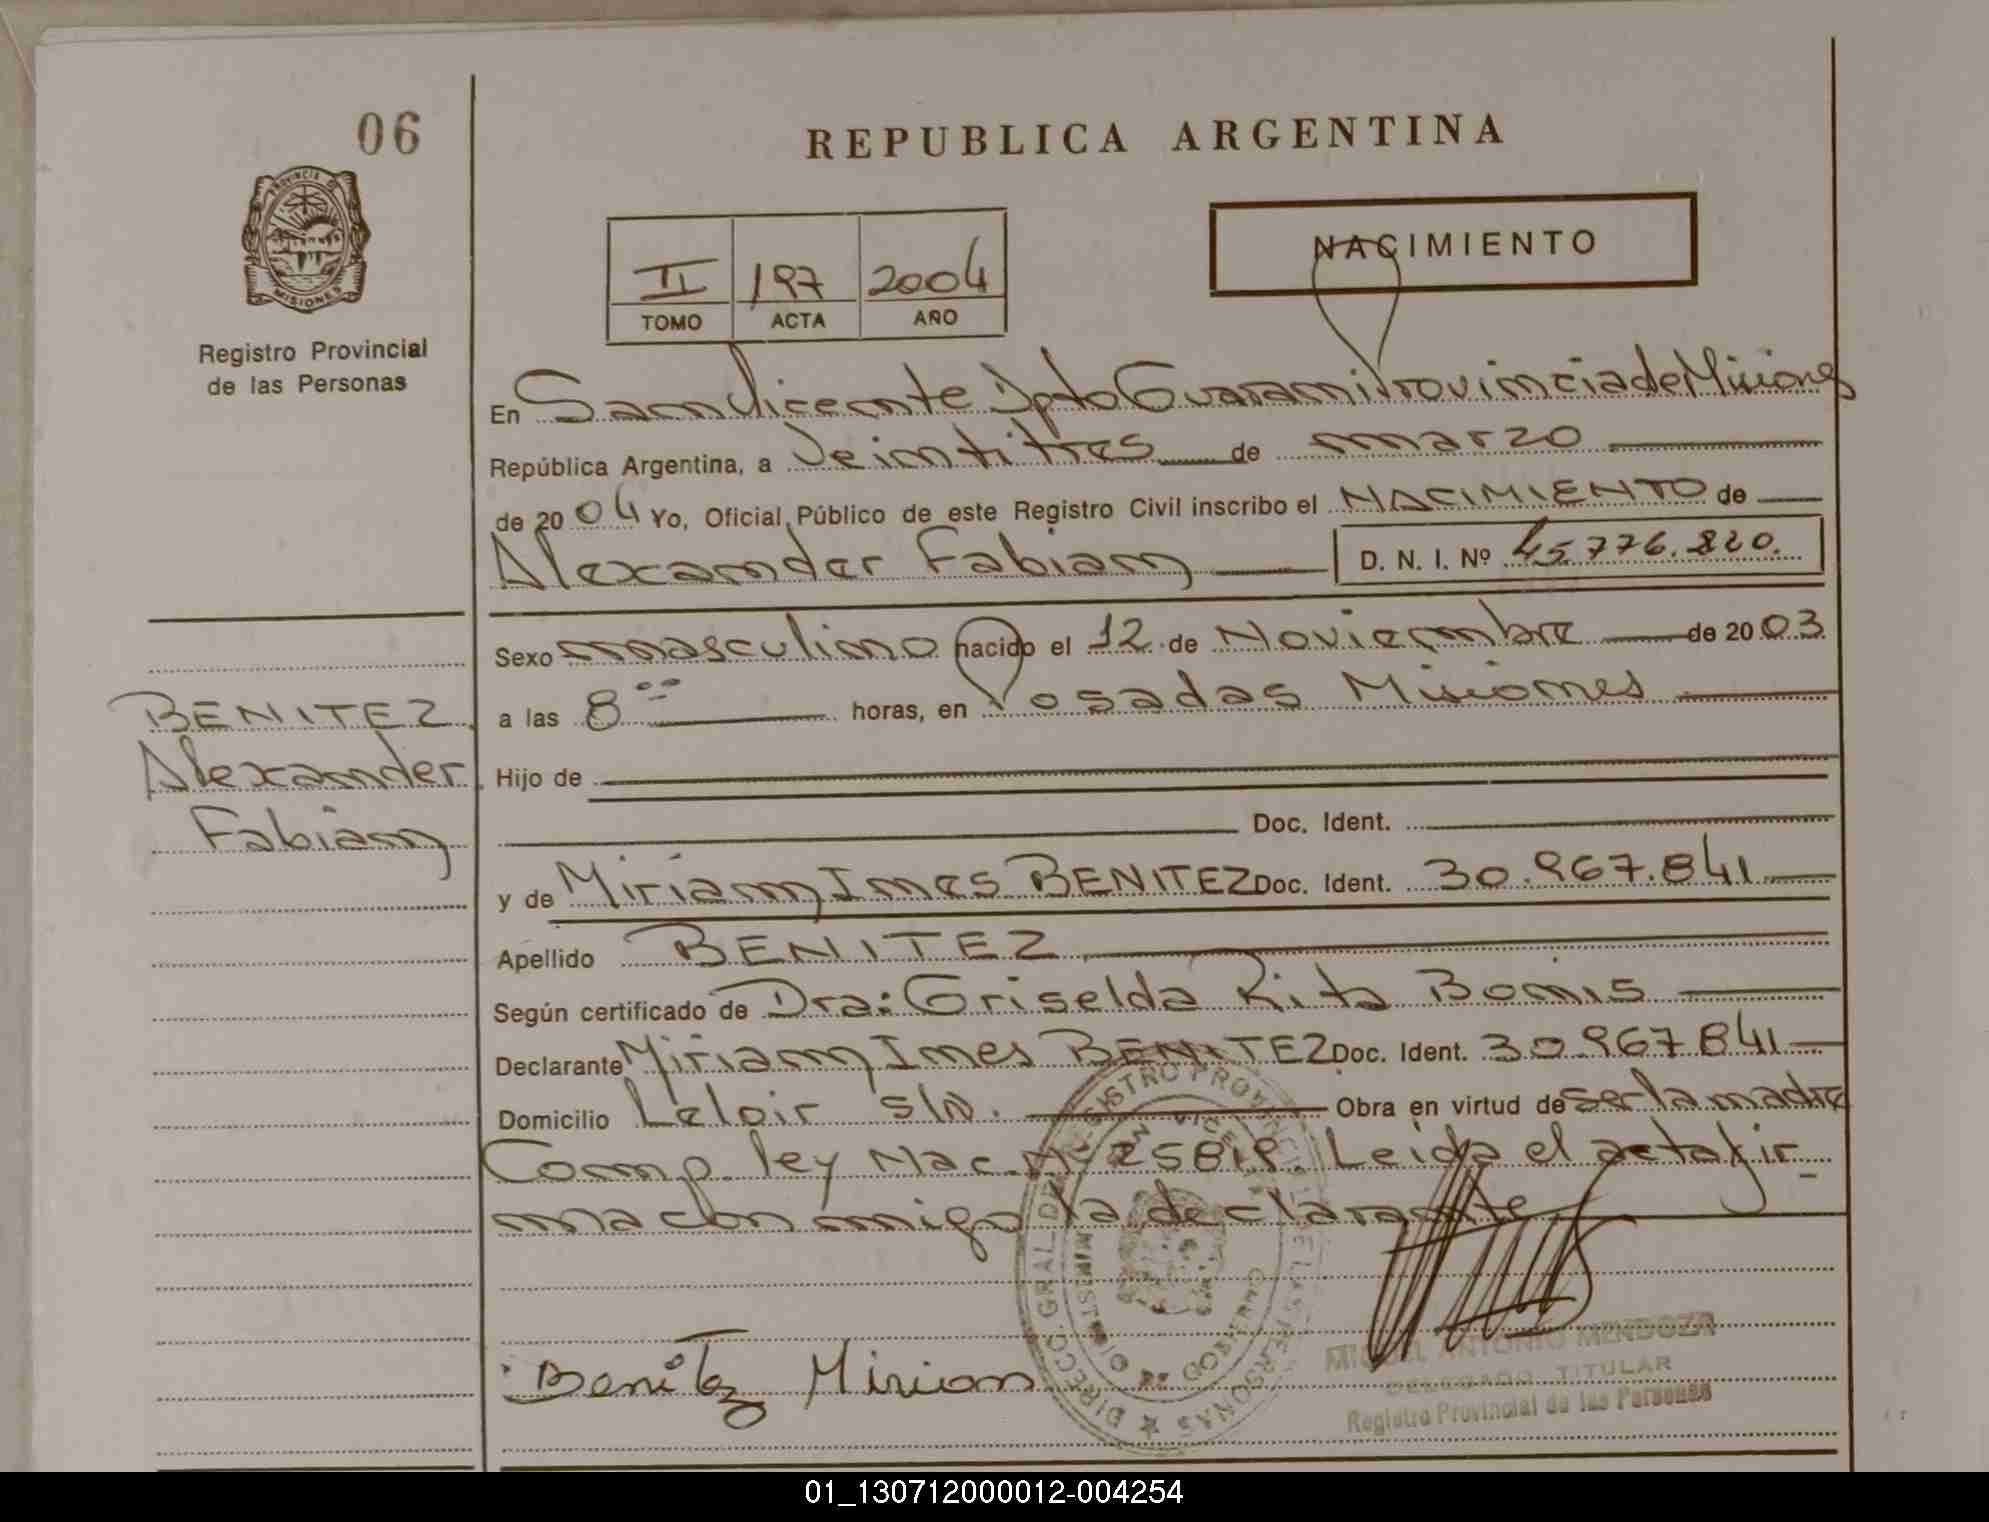 06
REPUBLICA ARGENTINA
PROVINCIA DE
MISIONES
Registro Provincial
de las Personas
II 197 2004
TOMO ACTA AÑO
NACIMIENTO
En San Vicente Dpto Guarani Provincia de Misiones
República Argentina, a Veintitres de marzo
de 2004 Yo, Oficial Público de este Registro Civil inscribo el NACIMIENTO de
Alexander Fabian D. N. I. Nº 45.776.820.
Sexo masculino nacido el 12 de Noviembre de 2003
a las 8 ºº horas, en Posadas Misiones
BENITEZ
Alexander
Fabian
Hijo de
Doc. Ident.
y de Miriam Ines BENITEZ Doc. Ident. 30.967.841
Apellido BENITEZ
Según certificado de Dra: Griselda Rita Bonis
Declarante Miriam Ines BENITEZ Doc. Ident. 30.967841
Domicilio Leloir s/N. Obra en virtud de ser la madre
Comp. ley Nac. Nº 25818. Leida el acta fir_
ma con migo la declarante
Benitez Mirian
DIRECC. GRAL. DEL REGISTRO PROVINCIAL DE LAS PERSONAS
MINISTERIO DE GOBIERNO
MIGUEL ANTONIO MENDOZA
DELEGADO TITULAR
Registro Provincial de las Personas
01_130712000012-004254